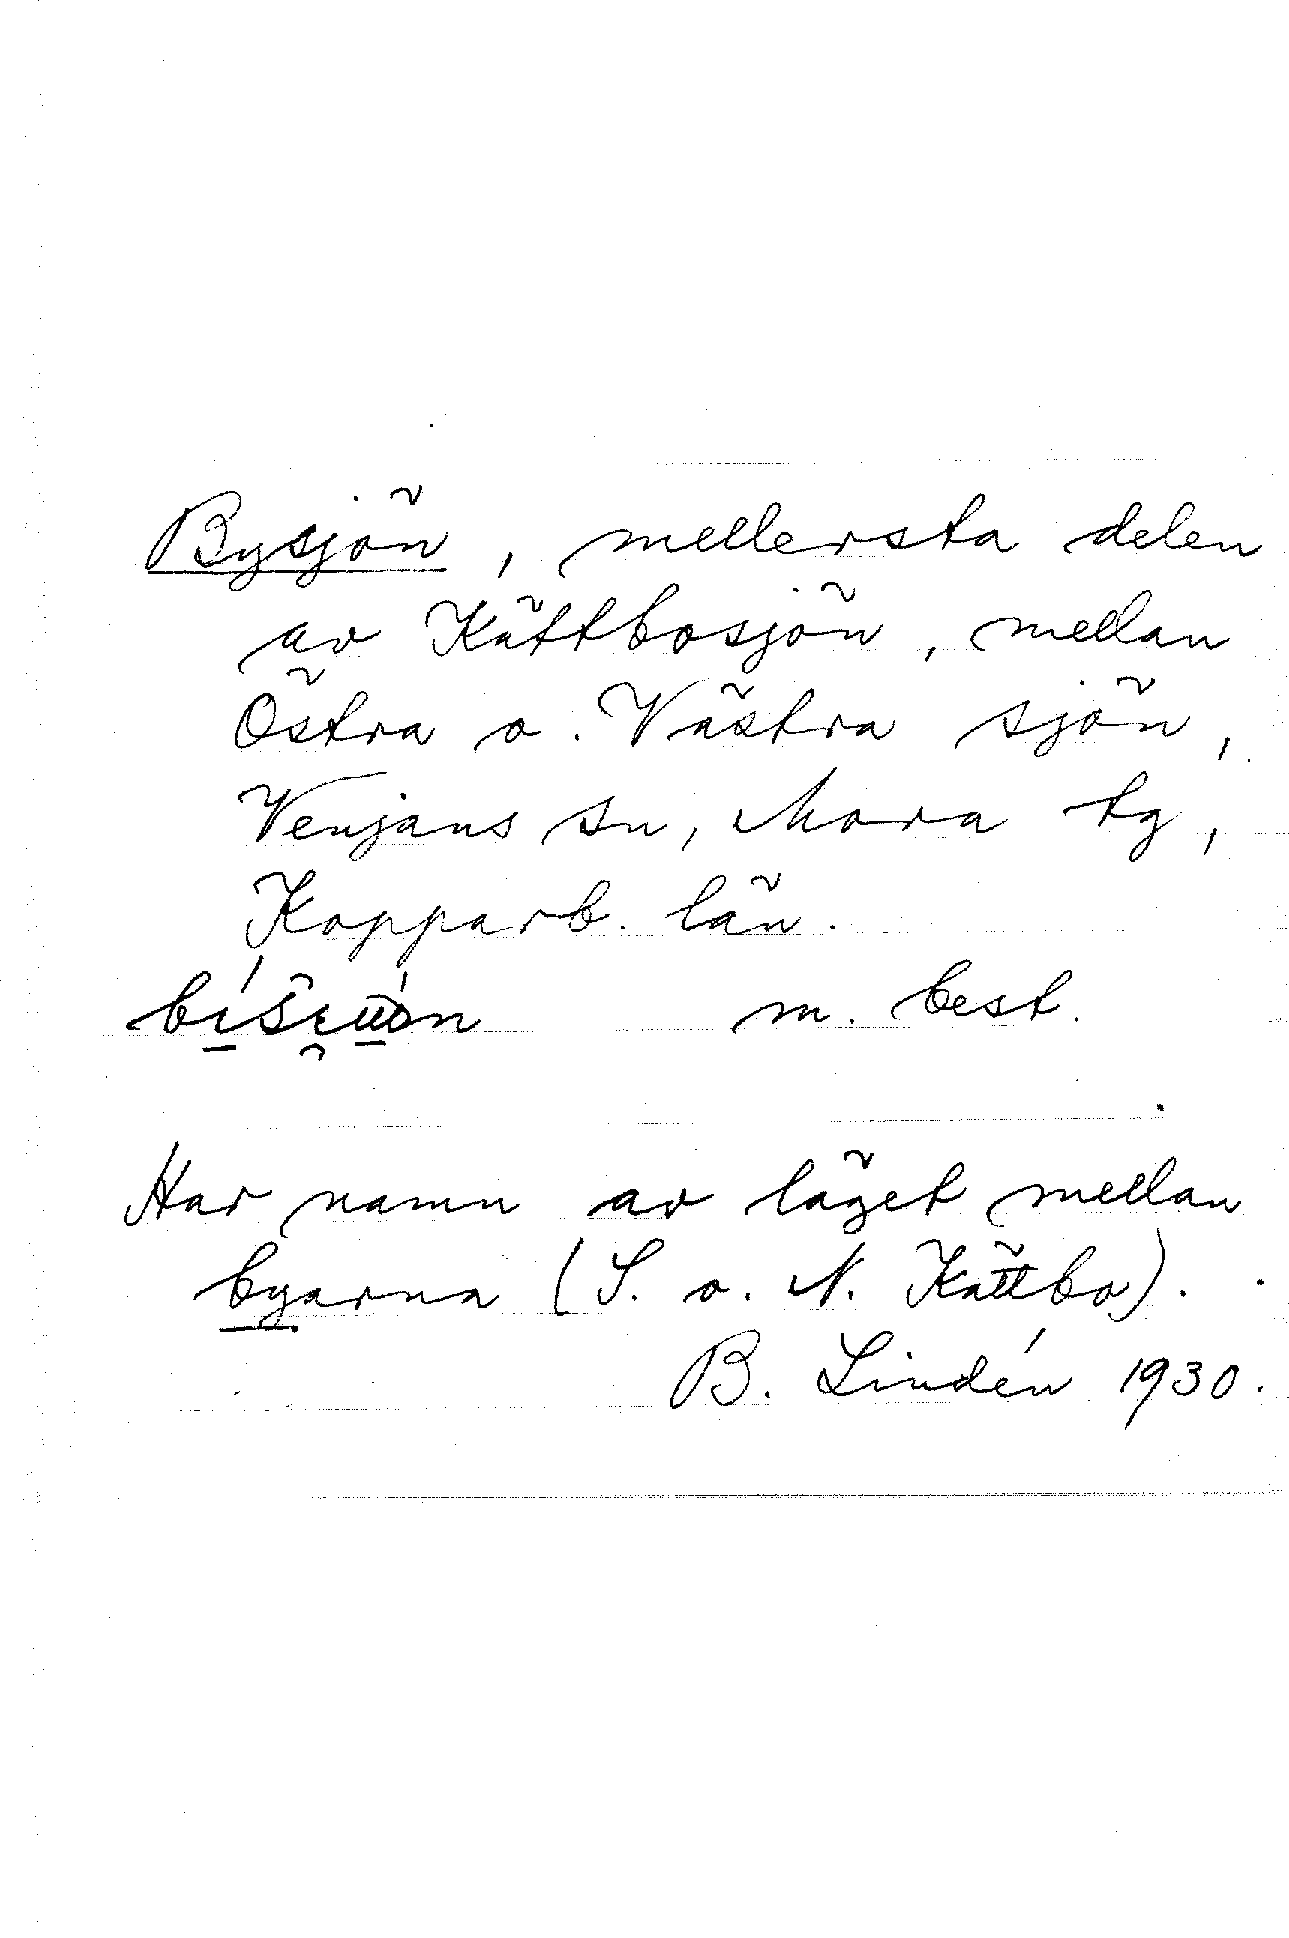 Bysjön, mellersta delen
av Kättbosjön, mellan
Östra o. Västra sjön,
Venjans sn, Mora tg,
Kopparb. län.
m. best.
Har namn av läget mellan
byarna (S. o. N. Kättbo).
B. Lindén 1930.